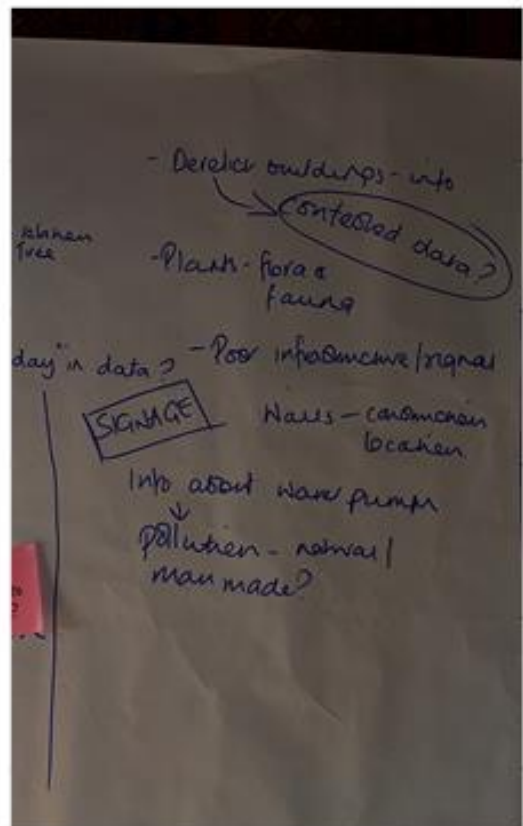 - Derelict buildings - info
contested data?
Tree
- Plants - flora &
fauna
day" in data?
- Poor infrastructure/signal
SIGNAGE
Walls - construction
location
Info about water pumps
pollution - natural/
man made?